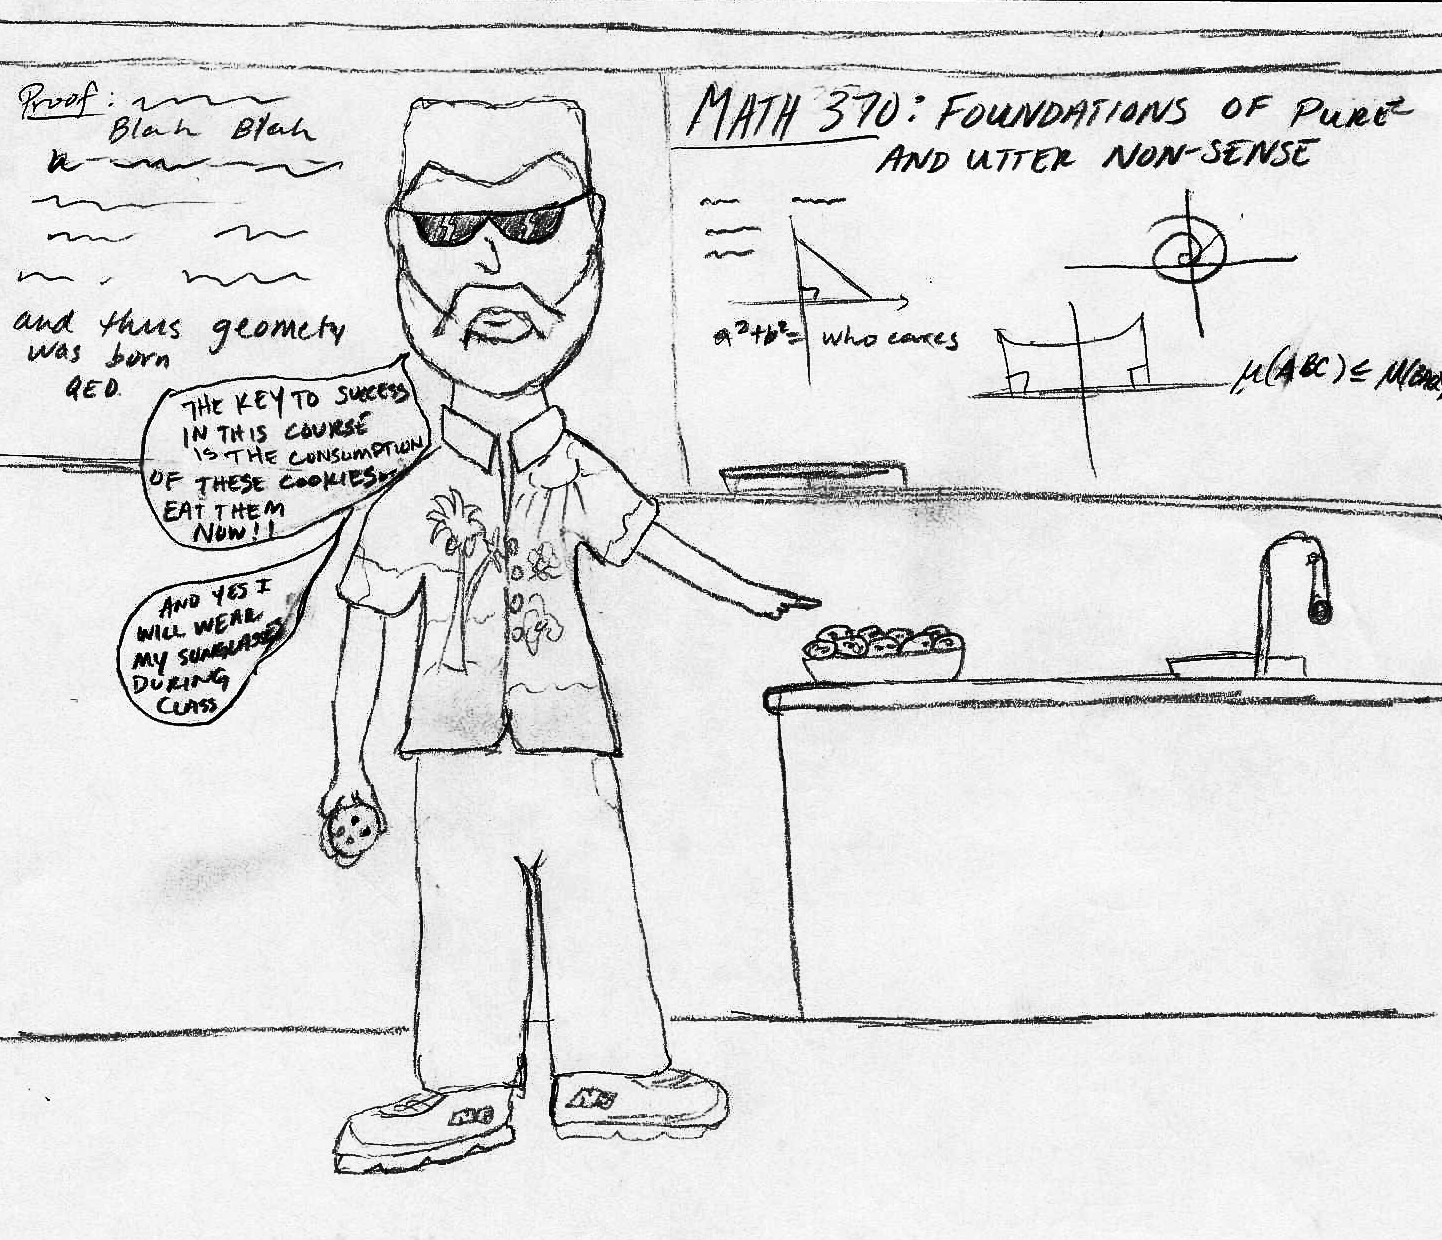 Proof:
Blah Blah
and thus geometry
was born
QED.
MATH 370: FOUNDATIONS OF PURE
AND UTTER NON-SENSE
a²+b²= who cares
THE KEY TO SUCCESS
IN THIS COURSE
IS THE CONSUMPTION
OF THESE COOKIES
EAT THEM
NOW!!
AND YES I
WILL WEAR
MY SUNGLASSES
DURING
CLASS